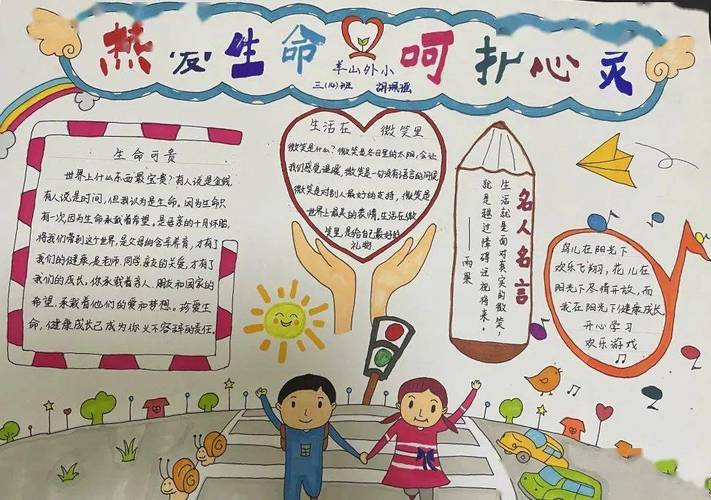 热发生命 呵护心灵
羊山外小
三(10)班
生命可贵
世界上什么东西最宝贵?有人说是金钱,
有人说是时间,但我认为是生命,因为生命只
有一次,因为生命承载着希望。是母亲的十月怀胎,
将我们带到这个世界,是父母的含辛养育,才有了
我们的健康,是老师、同学、亲友的关爱,才有了
我们的成长,你承载着亲人、朋友和国家的
希望,承载着他们的爱和梦想。珍爱生
命,健康成长已成为你义不容辞的责任。
生活在 微笑里
微笑是什么?微笑是冬日里的太阳,会让
我们感觉温暖,微笑是一句没有语言的问候
微笑是对别人最好的支持,微笑是
世界上最美的表情,生活在微
笑里,是给自己最好的
礼物
名人名言
生活就是面对真实的微笑,
就是越过障碍注视将来。
——雨果
鸟儿在阳光下
欢乐飞翔,花儿在
阳光下尽情开放,而
我在阳光下健康成长
开心学习
欢乐游戏